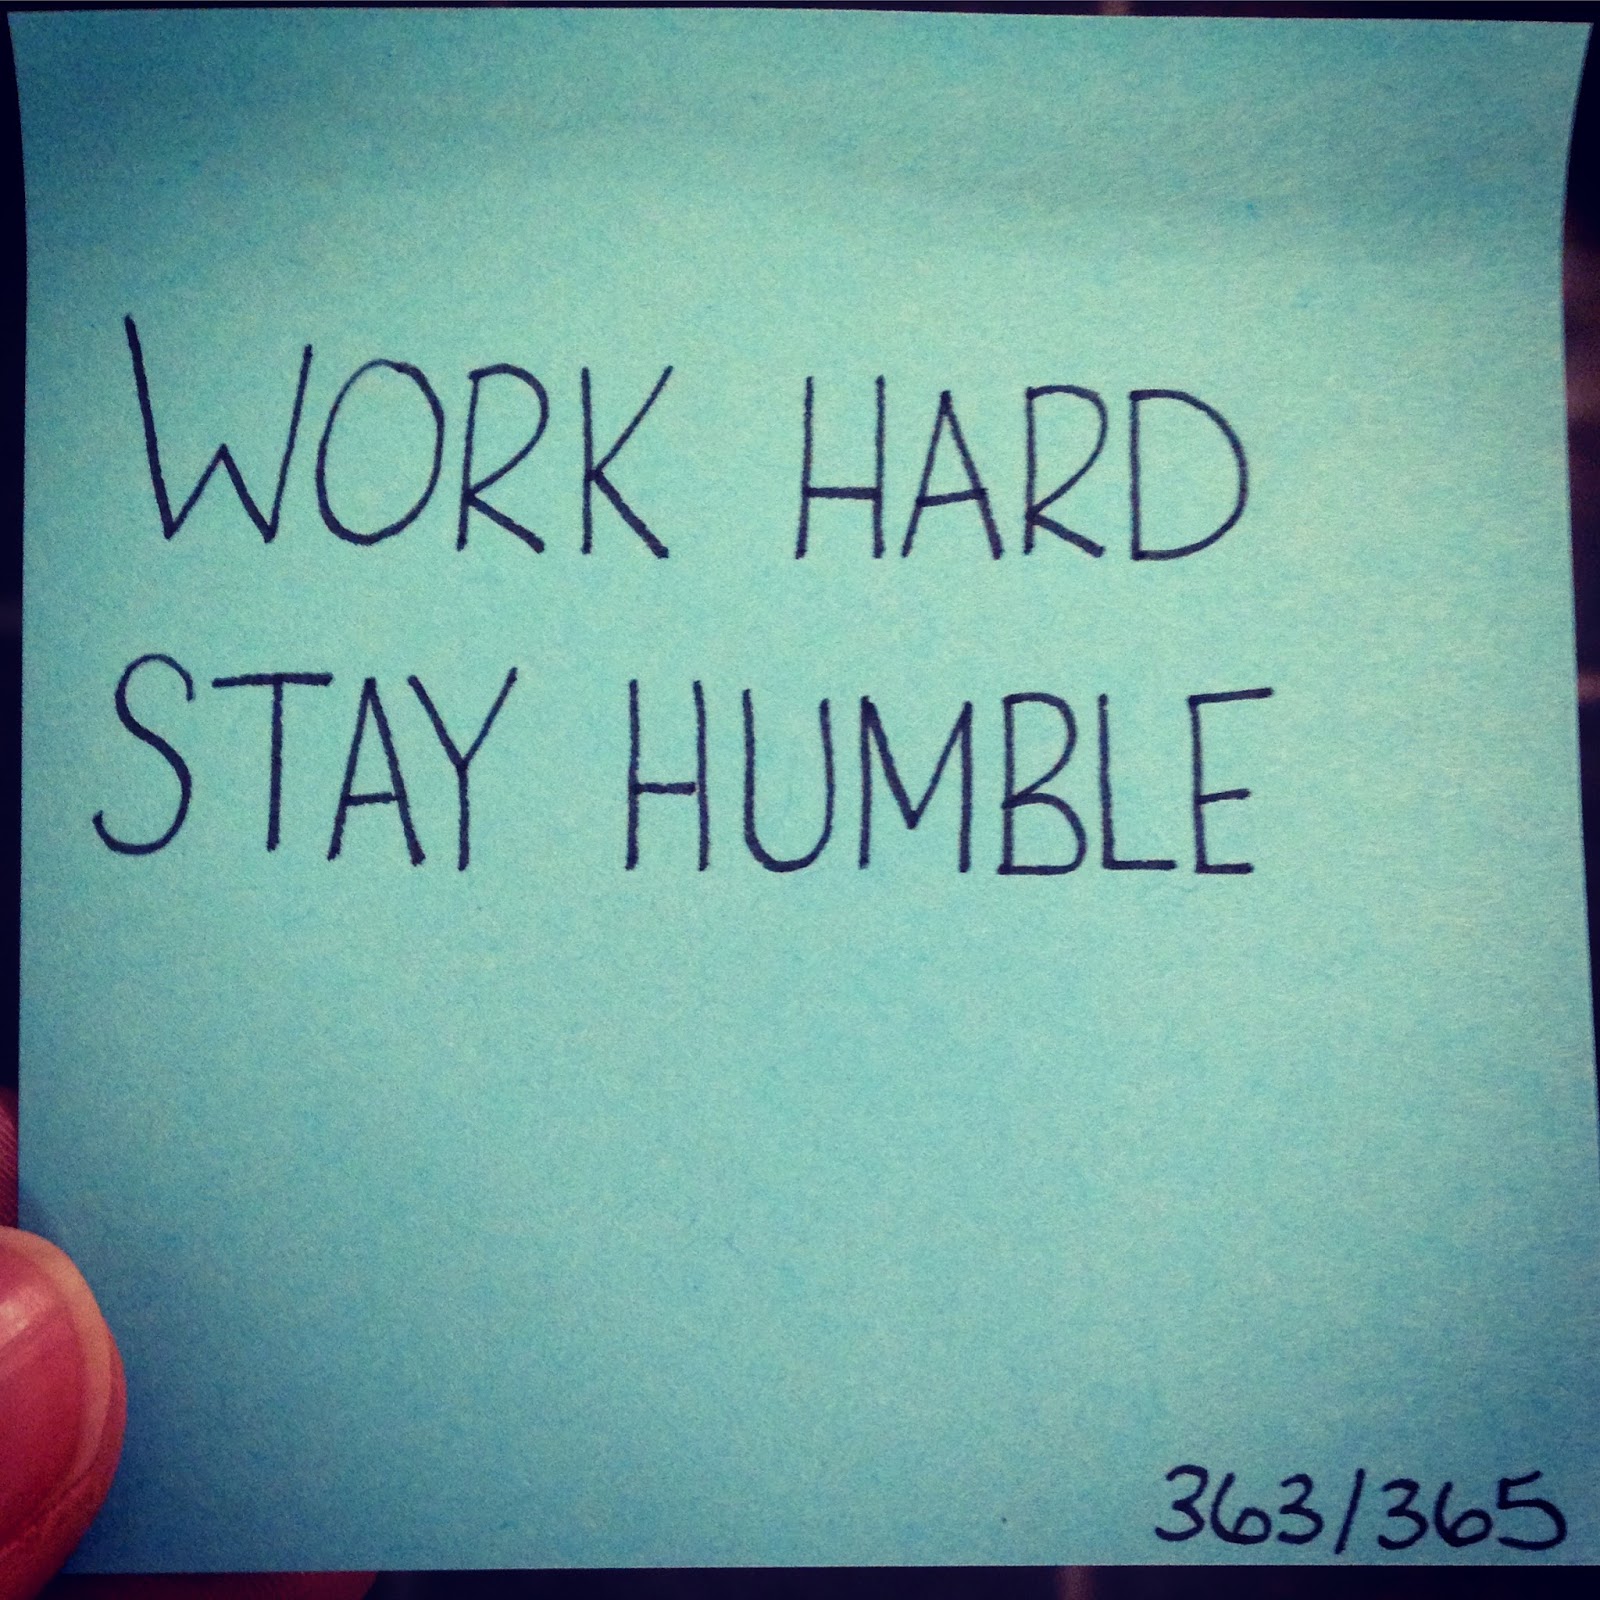 WORK HARD
STAY HUMBLE
363/365